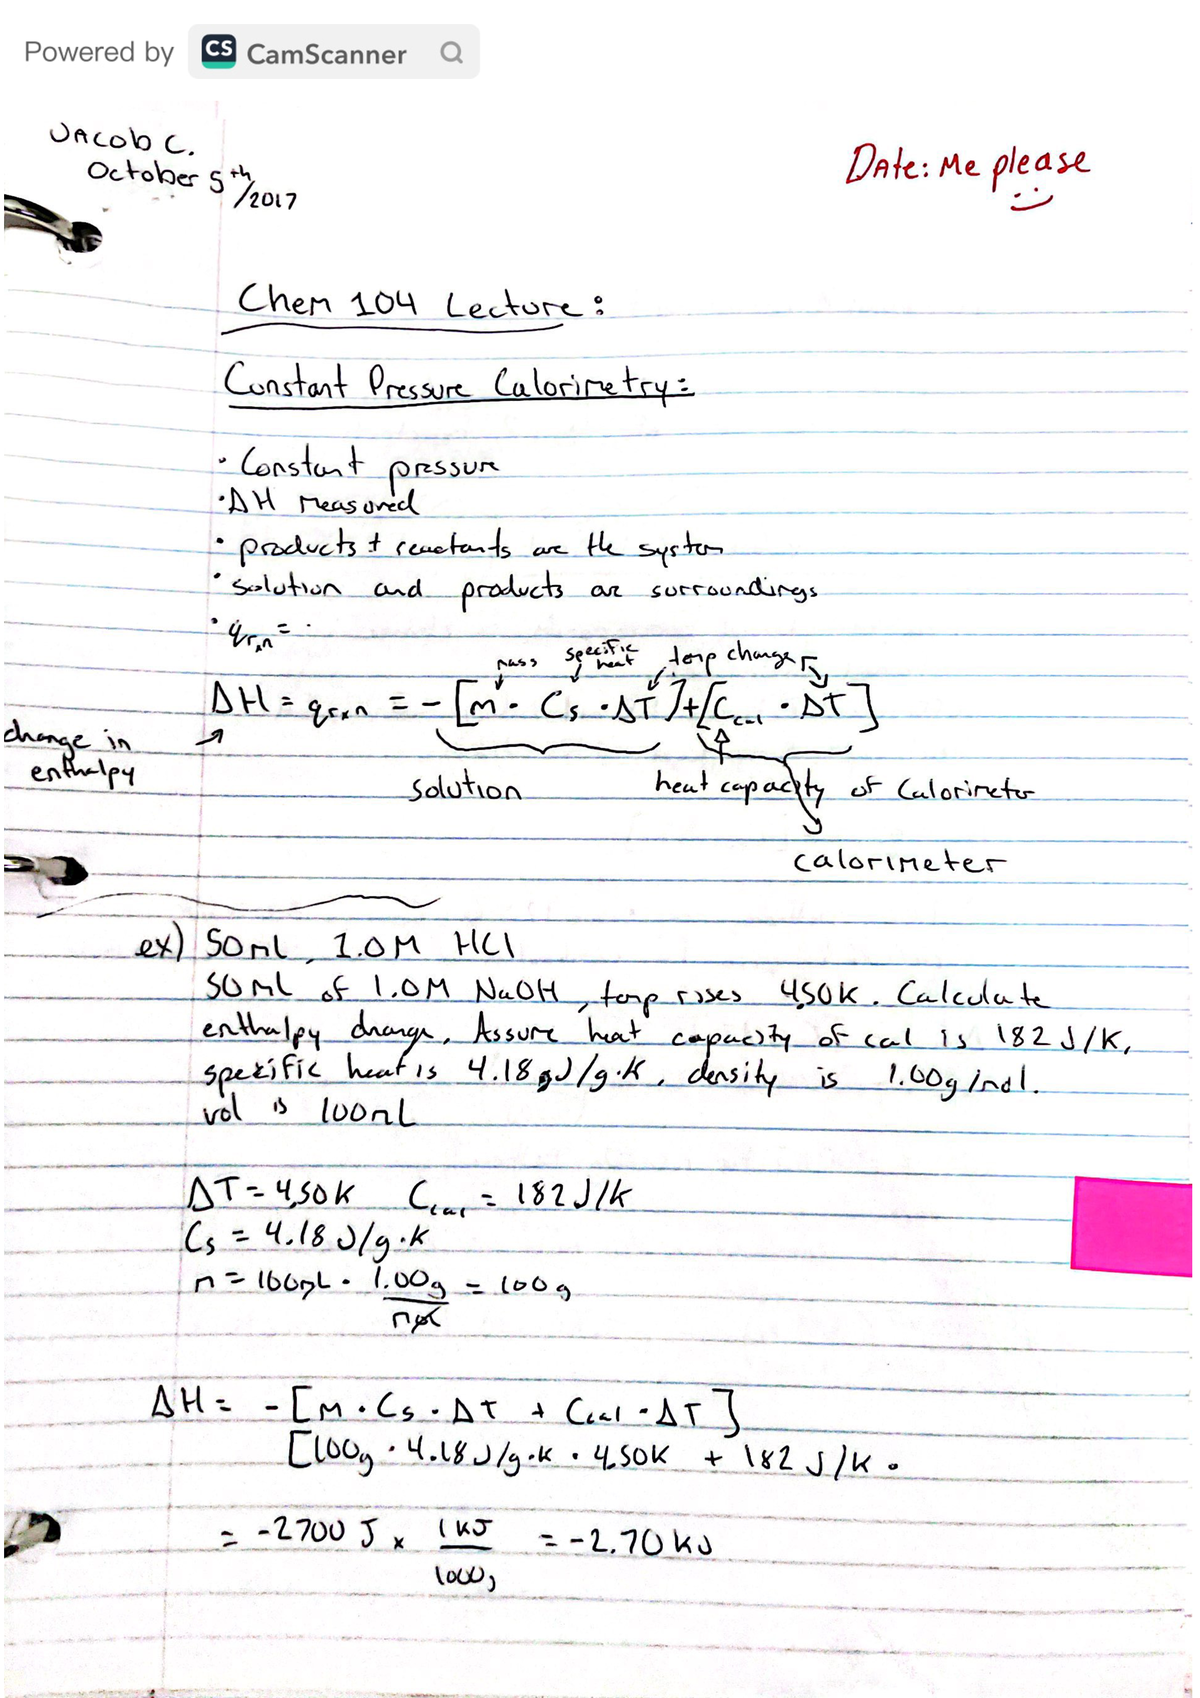 Powered by CS CamScanner
Jacob C.
October 5th/2017
Date: Me please
Chem 104 Lecture:
Constant Pressure Calorimetry:
· Constant pressure
· ΔH measured
· products + reactants are the system
· solution and products are surroundings
· qrxn = ·
mass specific heat temp change
ΔH = qrxn = - [m · Cs · ΔT] + [Ccal · ΔT]
change in enthalpy
solution heat capacity of calorimeter
calorimeter
ex) 50mL, 1.0M HCl
50mL of 1.0M NaOH, temp rises 4.50K. Calculate
enthalpy change, Assume heat capacity of cal is 182 J/K,
specific heat is 4.18 J/g·K, density is 1.00g/mL.
vol is 100mL
ΔT = 4.50K Ccal = 182 J/K
Cs = 4.18 J/g·K
m = 100mL · 1.00g/mL = 100g
ΔH = - [m · Cs · ΔT + Ccal · ΔT]
[100g · 4.18 J/g·K · 4.50K + 182 J/K ·
= -2700 J x 1 KJ/1000J = -2.70 KJ